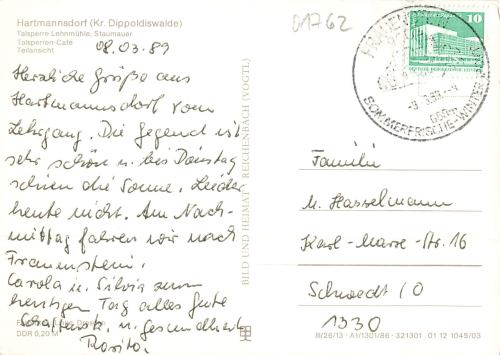 Hartmannsdorf (Kr. Dippoldiswalde)
Talsperre Lehnmühle, Staumauer
Talsperren-Café
Teilansicht
08.03.89
Herzliche Grüße aus
Hartmannsdorf vom
Lehrgang. Die Gegend ist
sehr schön u. bis Dienstag
schien die Sonne. Leider
heute nicht. Am Nach-
mittag fahren wir nach
Frauenstein.
Carola u. Silvia zum
heutigen Tag alles Gute
Schaffensk. u. Gesundheit
Rosita.
DDR 0,20 M
BILD UND HEIMAT REICHENBACH (VOGTL)
01762
10
SOMMERFRISCHE-WINTER
Familie
M. Hasselmann
Karl-Marx-Str. 16
Schwedt/O
1330
B/26/13 A1/1301/86 321301 01 12 1045/03